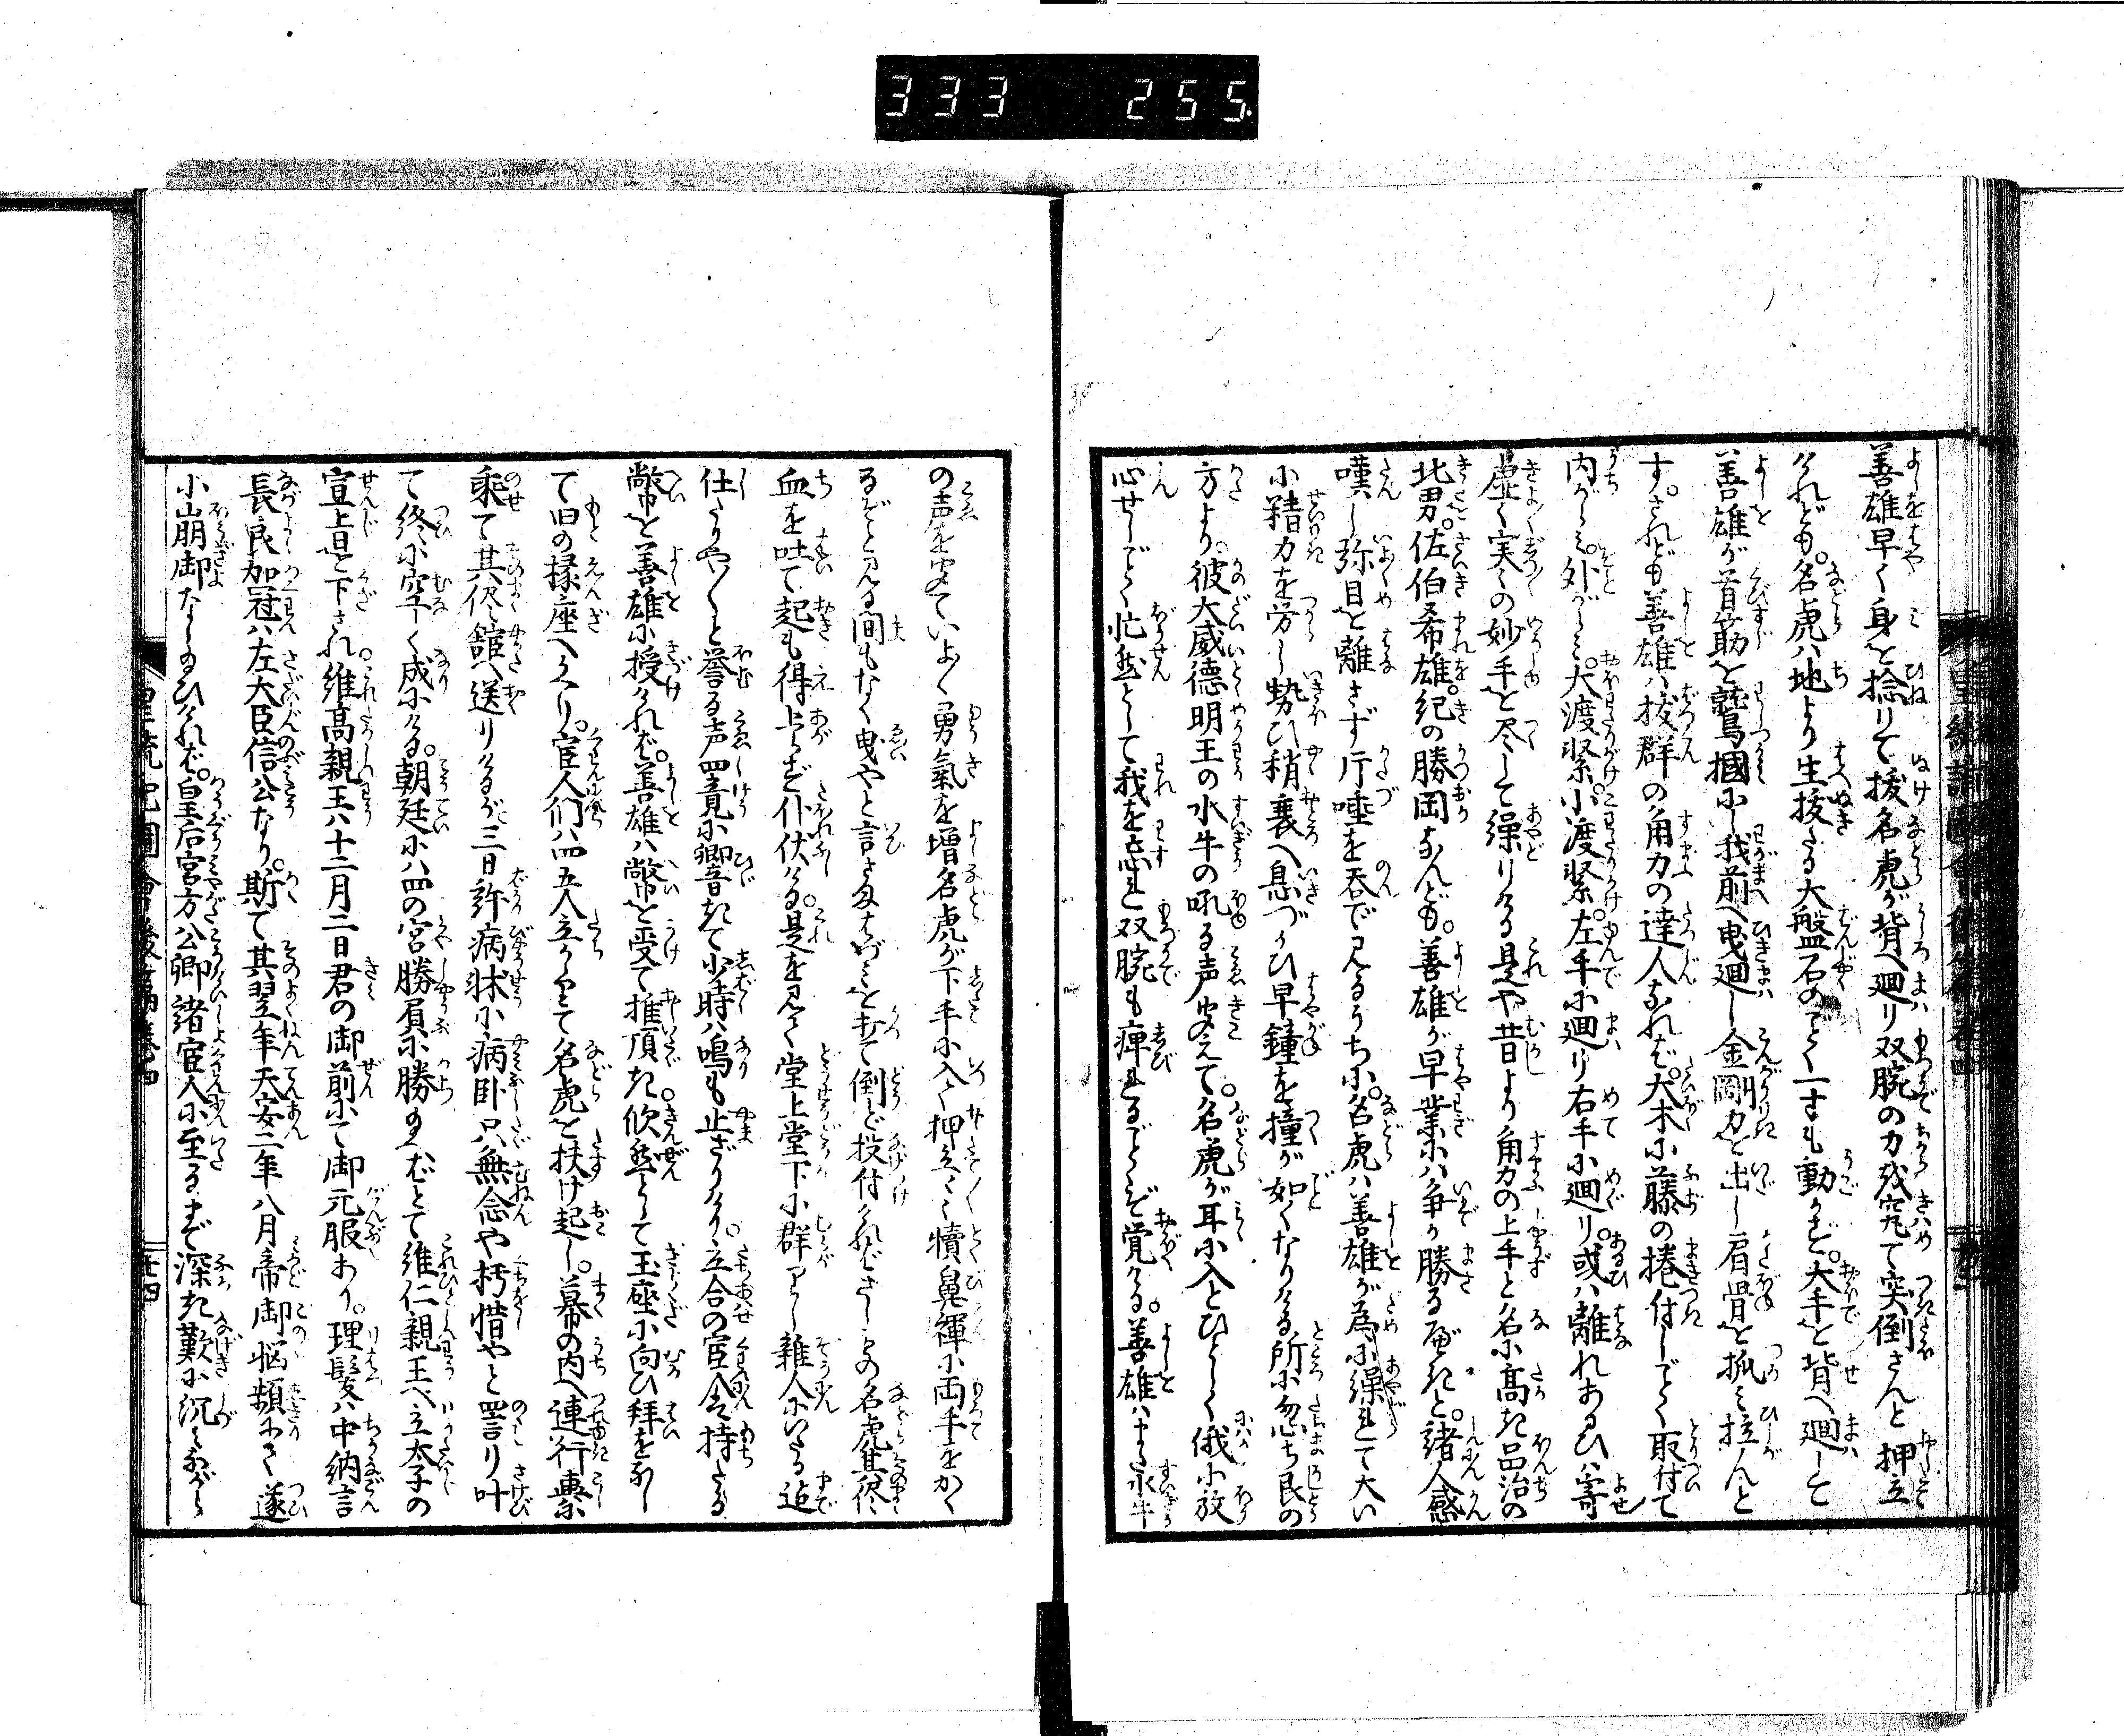 333 255
善雄早く身を捻りて援名虎が背へ廻り双腕の力残究て突倒さんと押立
けれども。名虎ハ地より生抜たる大盤石のごとく一寸も動かず。大手を背へ廻して
善雄が首筋を鷲摑にし我前へ曳廻し金剛力を出し肩骨を抓み拉んと
す。されども善雄ハ抜群の角力の達人なれバ。大木に藤の捲付しごとく取付て
内がらミ。外がらミ。大渡繋。小渡繋。左手に廻り右手に廻り。或ハ離れあるひハ寄
虚々実々の妙手を尽して繰りける是や昔より角力の上手と名に高き品治の
北男。佐伯希雄。紀の勝岡なんども。善雄が早業にハ争か勝るべきと。諸人感
嘆し弥目を離さず片唾を呑で見るうちに。名虎ハ善雄が為に繰れて大い
に精力を労し勢ひ稍衰へ息づかひ早鐘を撞が如くなりける所に忽ち艮の
方より。彼大威徳明王の水牛の吼る声聞えて。名虎が耳に入とひとしく俄に放
心せしごとく忙然として我を忘れ双腕も痺れるごとくぞ覚ける。善雄ハまた水牛
の声を聞ていよ〳〵勇氣を増名虎が下手に入て押立々々犢鼻褌に両手をかく
るぞと見る間もなく曳やと言さまはづミを打て倒ど投付けれバさしもの名虎其儘
血を吐て起も得上らず仆伏ける。是を見て堂上堂下に群りし雜人にいたる迠
仕たりや〳〵と誉る声四竟に響きて少時ハ鳴も止ざりけり。立合の官人持たる
幣を善雄に授けれバ。善雄ハ幣を受て推頂き欣然として玉座に向ひ拜をなし
て旧の椽座へかへり。官人們ハ四五人立かゝりて名虎を扶け起し。幕の内へ連行轝に
乘て其侭舘へ送りけるが三日許病牀に病臥只無念や朽惜やと詈り叫
て終に空く成にける。朝廷にハ四の宮勝負に勝のへバとて維仁親王へ立太子の
宣旨を下され。維髙親王ハ十二月二日君の御前にて御元服あり。理髪ハ中納言
長良加冠ハ左大臣信公なり。斯て其翌年天安二年八月帝御悩頻にて遂
に崩御なし給ひけれバ。皇后宮方公卿諸官人に至るまで深き歎に沉ミながら
皇統記圖會後篇巻四
廿四